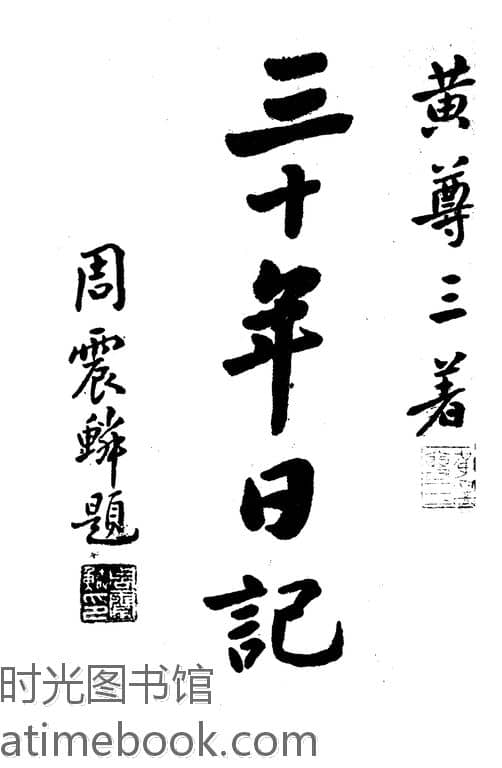 黄尊三著
三十年日記
周震鱗題
时光图书馆
atimebook.com